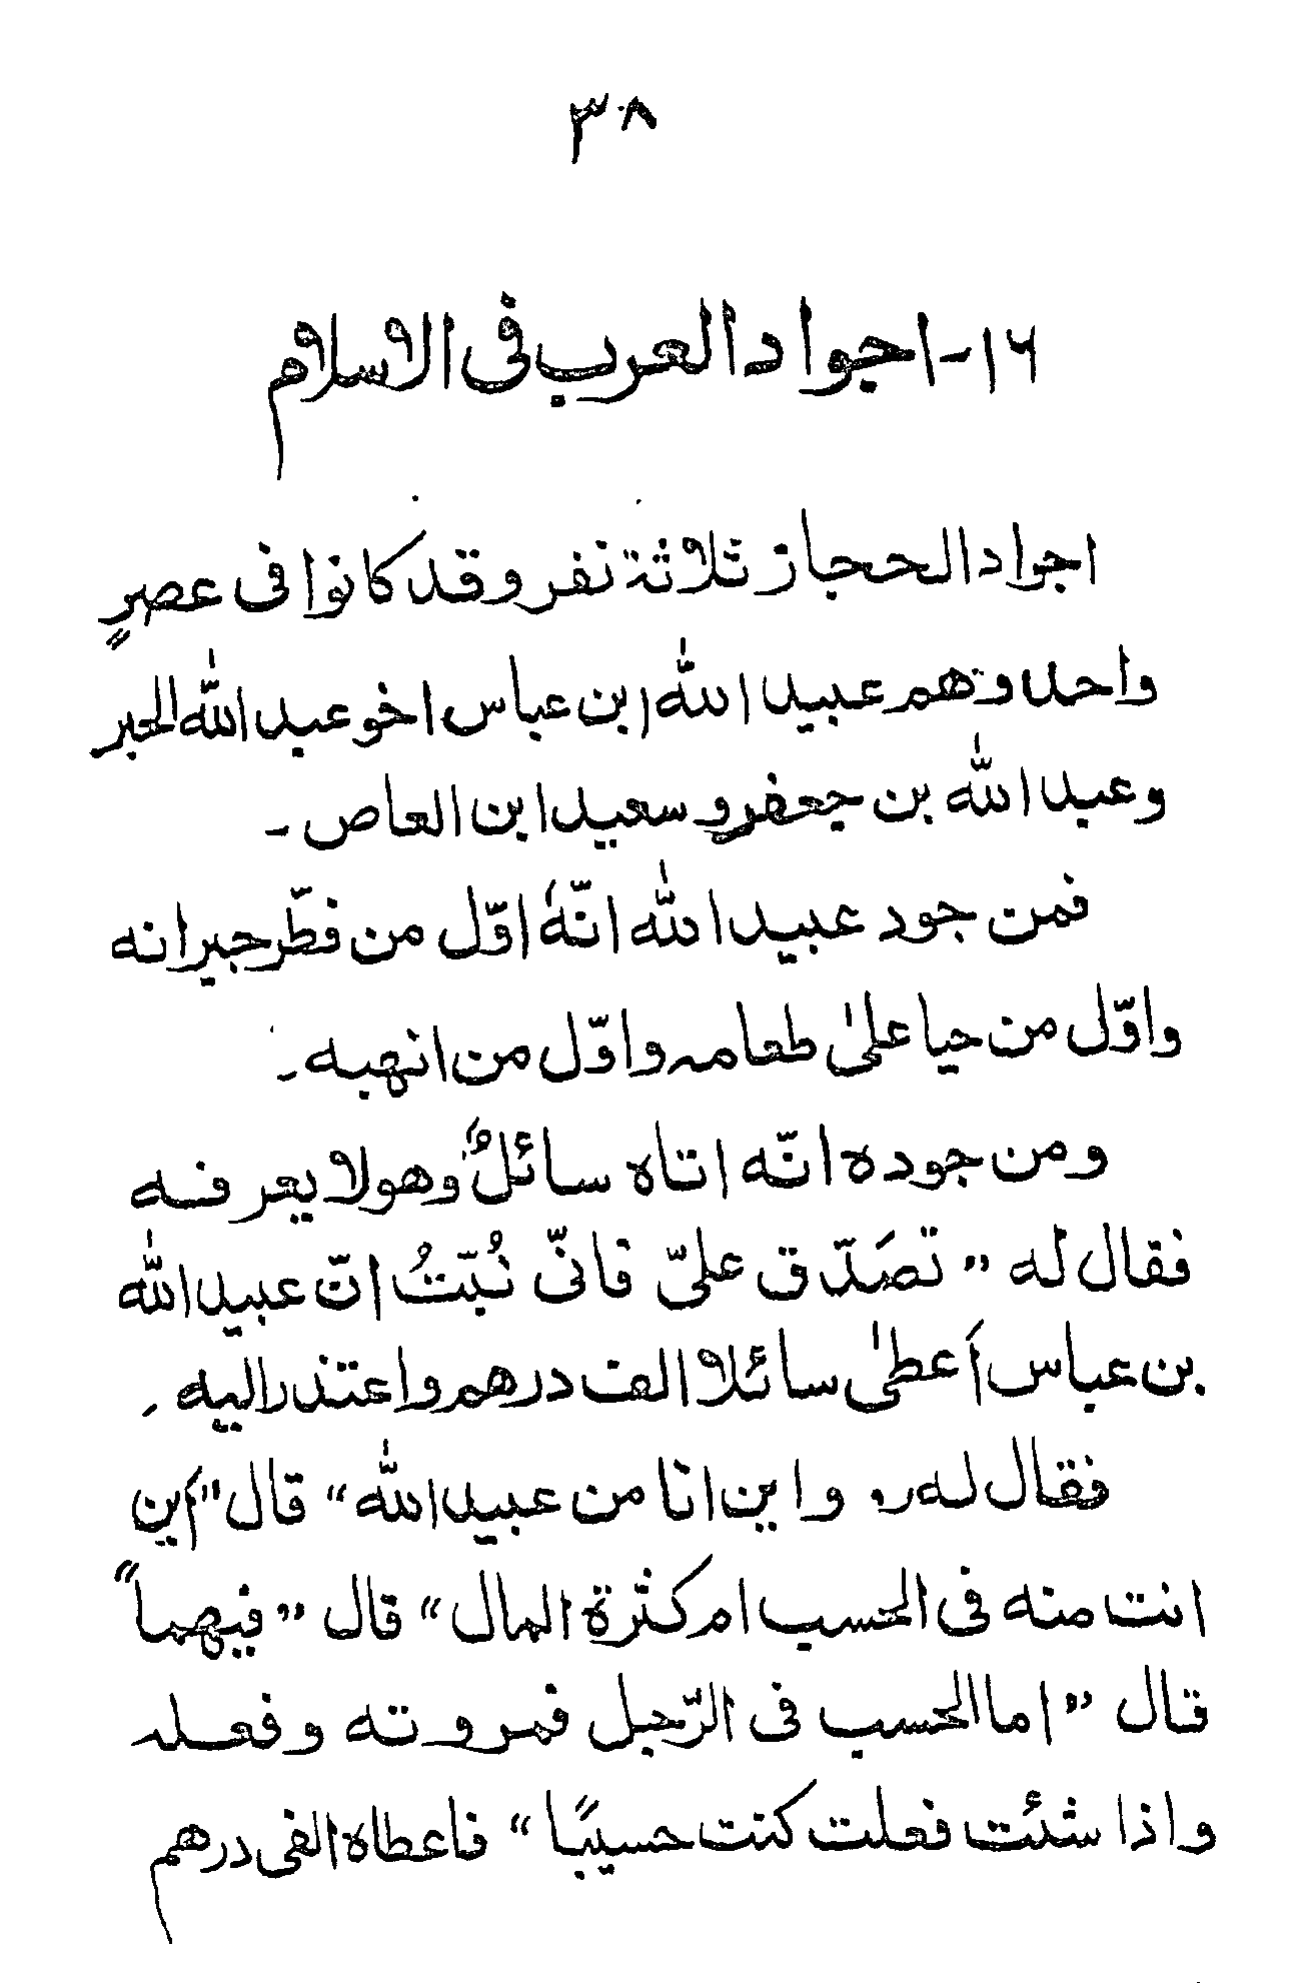 ٣٨
١٦- اجواد العرب فى الاسلام
اجواد الحجاز ثلاثة نفر وقد كانوا فى عصرٍ
واحد وهم عبيد الله ابن عباس اخو عبد الله الحبر
وعبد الله بن جعفر و سعيد ابن العاص -
فمن جود عبيد الله انّهٗ اوّل من فطّر جيرانه
واوّل من حيا علىٰ طعامه واوّل من انهبه -
ومن جوده انّه اتاه سائلٌ وهو لا يعرفه
فقال له " تصَدّق علىّ فانّى نُبّتُ انّ عبيد الله
بن عباس أعطىٰ سائلا الف درهم واعتذر اليه .
فقال له " واين انا من عبيد الله " قال " أين
انت منه فى الحسب ام كثرة المال " قال " فيهما "
قال " اما الحسب فى الرّجل فمروته وفعله
واذا شئت فعلت كنت حسيبًا " فاعطاه الفى درهم